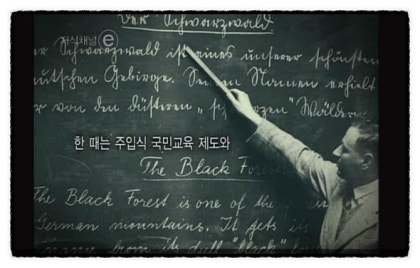 Der Schwarzwald
지식채널 e
er Schwarzwald ist eines unserer schönsten
utschen Gebirge. Seinen Namen erhielt
er von den düsteren „schwarzen" Wäldern
한 때는 주입식 국민교육 제도와
The Black Fores
The Black Forest is one of the
German mountains. It gets its
name from its dull "black"